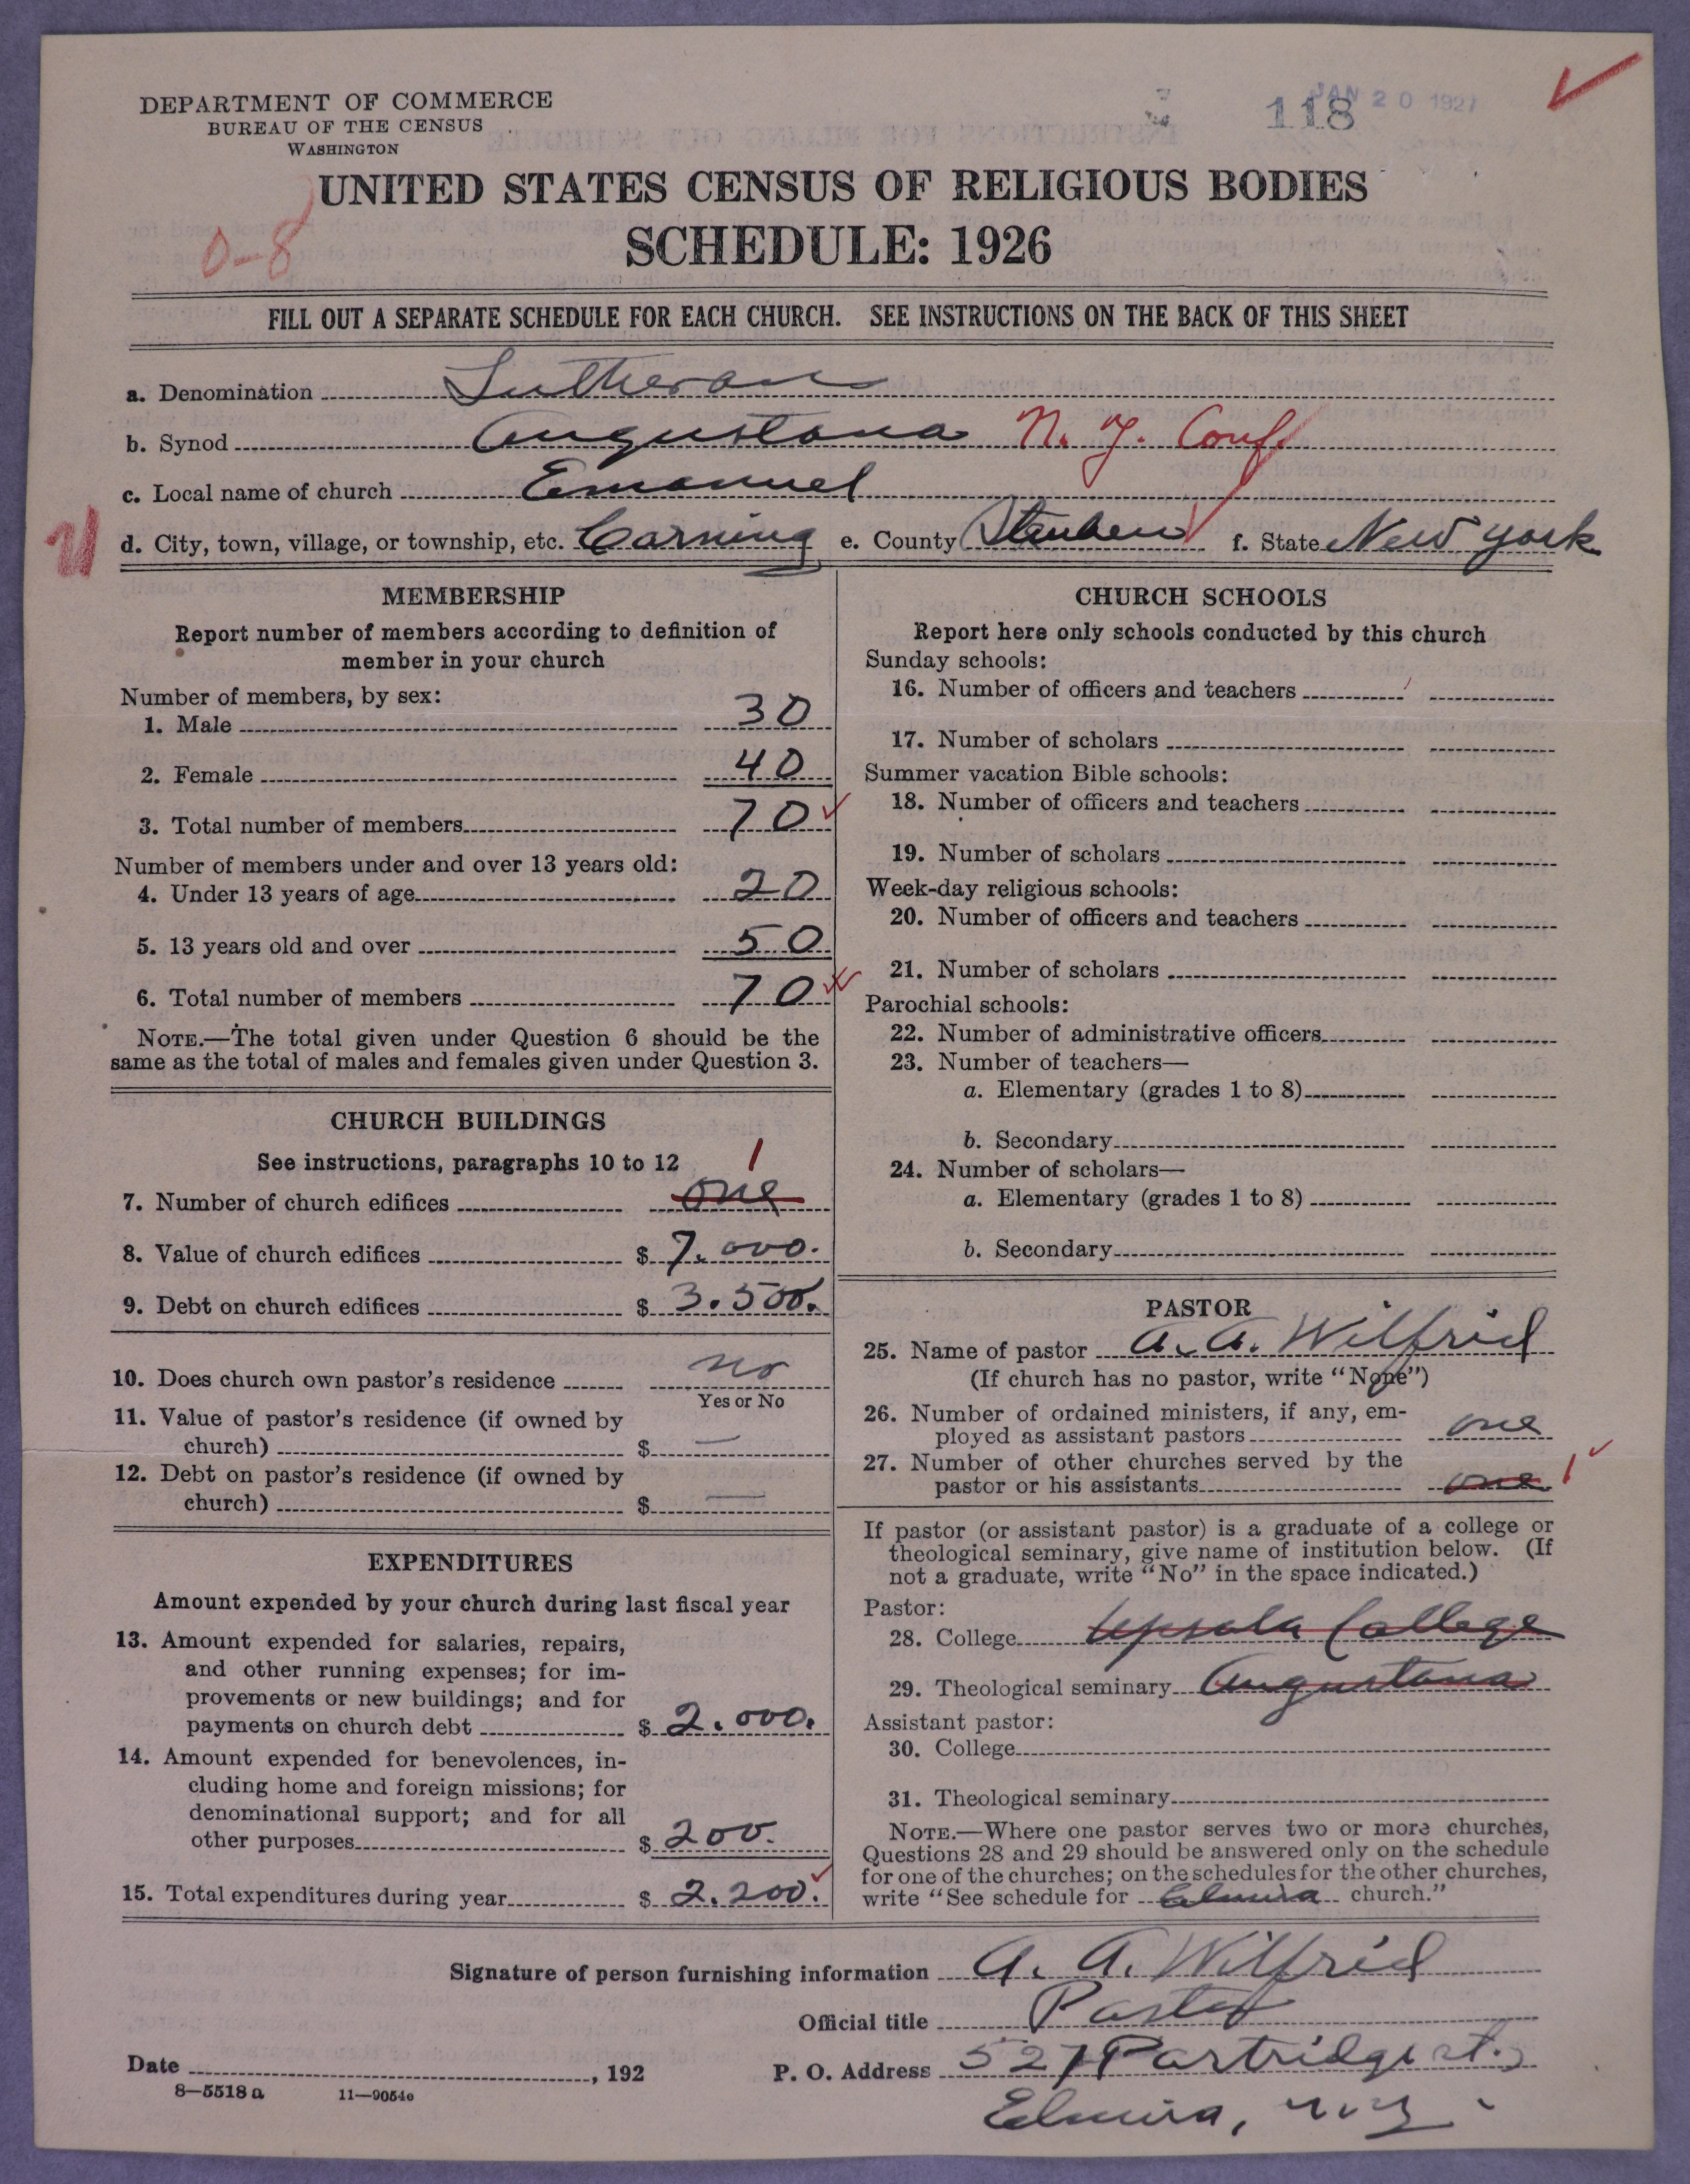 DEPARTMENT OF COMMERCE
BUREAU OF THE CENSUS
WASHINGTON
118
JAN 20 1927
UNITED STATES CENSUS OF RELIGIOUS BODIES
0-8
SCHEDULE: 1926
FILL OUT A SEPARATE SCHEDULE FOR EACH CHURCH. SEE INSTRUCTIONS ON THE BACK OF THIS SHEET
a. Denomination Lutheran
b. Synod Augustana N. Y. Conf.
c. Local name of church Emanuel
d. City, town, village, or township, etc. Corning e. County Steuben f. State New York
MEMBERSHIP
Report number of members according to definition of
member in your church
Number of members, by sex:
1. Male 30
2. Female 40
3. Total number of members 70
Number of members under and over 13 years old:
4. Under 13 years of age 20
5. 13 years old and over 50
6. Total number of members 70
NOTE.—The total given under Question 6 should be the
same as the total of males and females given under Question 3.
CHURCH BUILDINGS
See instructions, paragraphs 10 to 12 1
7. Number of church edifices one
8. Value of church edifices $ 7.000.
9. Debt on church edifices $ 3.500.
10. Does church own pastor's residence no
Yes or No
11. Value of pastor's residence (if owned by
church) $ —
12. Debt on pastor's residence (if owned by
church) $ —
EXPENDITURES
Amount expended by your church during last fiscal year
13. Amount expended for salaries, repairs,
and other running expenses; for im-
provements or new buildings; and for
payments on church debt $ 2.000.
14. Amount expended for benevolences, in-
cluding home and foreign missions; for
denominational support; and for all
other purposes $ 200.
15. Total expenditures during year $ 2.200.
CHURCH SCHOOLS
Report here only schools conducted by this church
Sunday schools:
16. Number of officers and teachers
17. Number of scholars
Summer vacation Bible schools:
18. Number of officers and teachers
19. Number of scholars
Week-day religious schools:
20. Number of officers and teachers
21. Number of scholars
Parochial schools:
22. Number of administrative officers
23. Number of teachers—
a. Elementary (grades 1 to 8)
b. Secondary
24. Number of scholars—
a. Elementary (grades 1 to 8)
b. Secondary
PASTOR
25. Name of pastor A. A. Wilfrid
(If church has no pastor, write "None")
26. Number of ordained ministers, if any, em-
ployed as assistant pastors one
27. Number of other churches served by the
pastor or his assistants one 1
If pastor (or assistant pastor) is a graduate of a college or
theological seminary, give name of institution below. (If
not a graduate, write "No" in the space indicated.)
Pastor:
28. College Upsala College
29. Theological seminary Augustana
Assistant pastor:
30. College
31. Theological seminary
NOTE.—Where one pastor serves two or more churches,
Questions 28 and 29 should be answered only on the schedule
for one of the churches; on the schedules for the other churches,
write "See schedule for Elmira church."
Signature of person furnishing information A. A. Wilfrid
Official title Pastor
Date , 192
P. O. Address 527 Partridge st.,
Elmira, N.Y.
8—5518 a 11—9054c